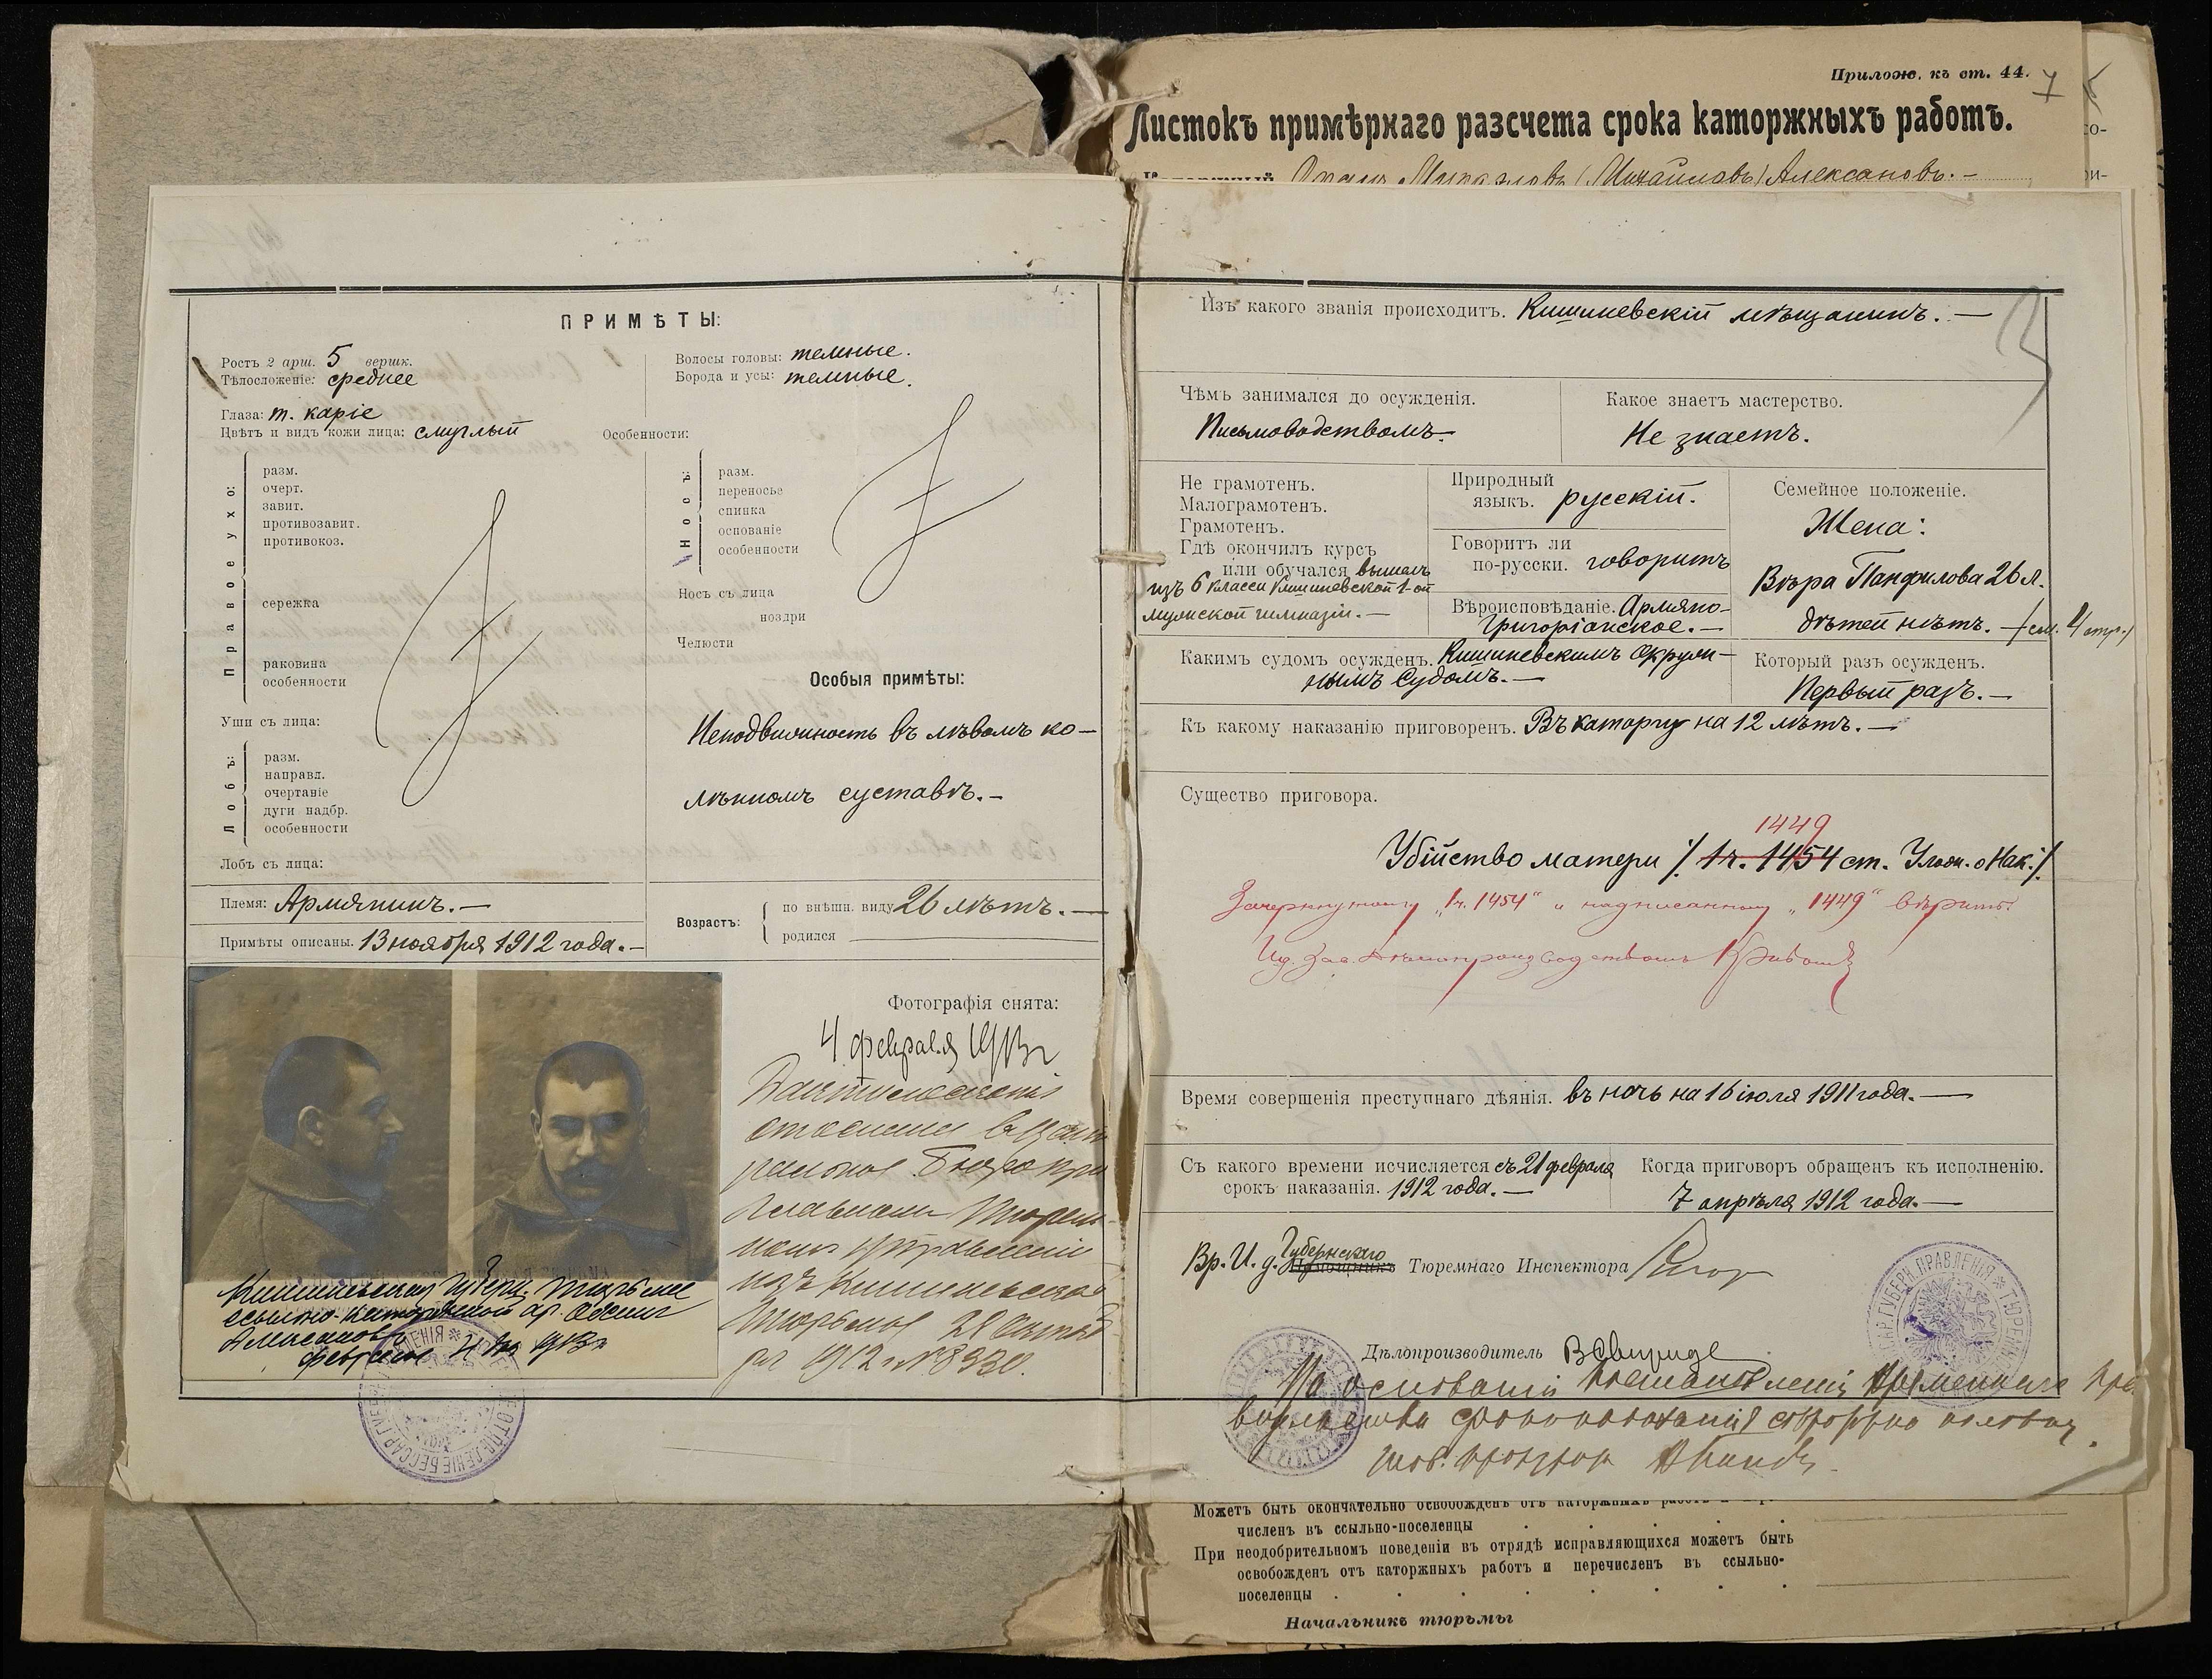 Прилож. къ ст. 44.
7
Листокъ примѣрнаго разсчета срока каторжныхъ работъ.
(Михайловъ) Алексановъ. –
ПРИМѢТЫ:
Ростъ 2 арш. 5 вершк.
Тѣлосложеніе: среднее
Глаза: т. каріе
Цвѣтъ и видъ кожи лица: смуглый
Волосы головы: темные.
Борода и усы: темные.
Особенности:
Правое ухо:
разм.
очерт.
завит.
противозавит.
противокоз.
сережка
раковина
особенности
Уши съ лица:
Лобъ:
разм.
направл.
очертаніе
дуги надбр.
особенности
Лобъ съ лица:
Носъ:
разм.
переносье
спинка
основаніе
особенности
Носъ съ лица
ноздри
Челюсти
Особыя примѣты:
Неподвижность въ лѣвомъ ко-
лѣнномъ суставѣ. –
Племя: Армянинъ. –
Примѣты описаны. 13 ноября 1912 года. –
Возрастъ:
по внѣшн. виду 26 лѣтъ. –
родился
Фотографія снята:
4 февраля 1913 г
отосланы в Цент
ральное Бюро при
Главномъ Тюрем-
номъ Управленіи
изъ Кишиневской
Тюрьмы 28
1912 г №
Кишиневская Губерн. тюрьма
ссыльно-каторжный ар. Осипъ
Алексановъ
февраля 4 дня 1913 г
Изъ какого званія происходитъ. Кишиневскій мѣщанинъ. –
Чѣмъ занимался до осужденія.
Письмоводствомъ. –
Какое знаетъ мастерство.
Не знаетъ.
Не грамотенъ.
Малограмотенъ.
Грамотенъ.
Гдѣ окончилъ курсъ
или обучался вышелъ
изъ 6 класса Кишиневской 1-ой
мужской гимназіи. –
Природный
языкъ. русскій.
Говоритъ ли
по-русски. говоритъ
Вѣроисповѣданіе. Армяно-
Григоріанское. –
Семейное положеніе.
Жена:
Вѣра Панфилова 26 л.
дѣтей нѣтъ. – /см. 4 стр./
Какимъ судомъ осужденъ. Кишиневскимъ Окруж-
нымъ Судомъ. –
Который разъ осужденъ.
Первый разъ. –
Къ какому наказанію приговоренъ. Въ каторгу на 12 лѣтъ. –
Существо приговора.
1449
Убійство матери /. 1 ч. 1454 ст. Улож. о Нак./
Зачеркнутому „1 ч. 1454“ и надписанному „1449“ вѣрить.
Время совершенія преступнаго дѣянія. въ ночь на 16 іюля 1911 года. –
Съ какого времени исчисляется съ 21 февраля
срокъ наказанія. 1912 года. –
Когда приговоръ обращенъ къ исполненію.
7 апрѣля 1912 года. –
Губернскаго
Вр. И. д. Помощникъ Тюремнаго Инспектора
Дѣлопроизводитель
На основаніи Постановленія Временнаго Пра
вительства срокъ наказанія сокращенъ на половину.
Тов. прокурора
Можетъ быть окончательно освобожденъ отъ каторжныхъ работъ
численъ въ ссыльно-поселенцы
При неодобрительномъ поведеніи въ отрядѣ исправляющихся можетъ быть
освобожденъ отъ каторжныхъ работъ и перечисленъ въ ссыльно-
поселенцы
Начальникъ тюрьмы